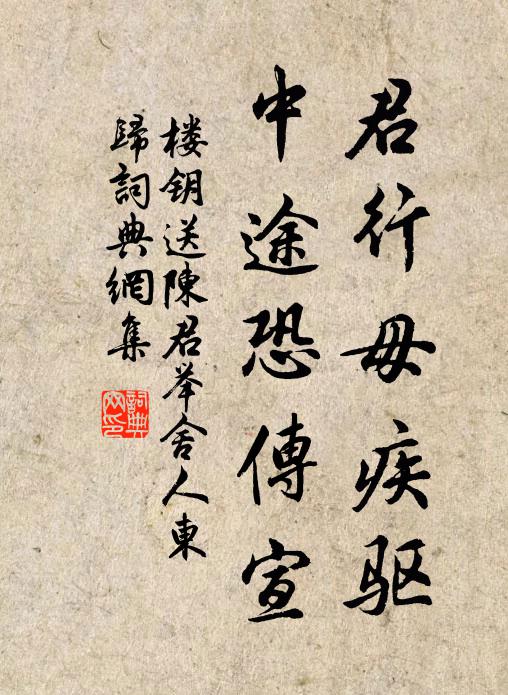 君行毋疾驱
中途恐傳宣
楼钥送陳君举舍人東
歸詞典網集
詞典网印